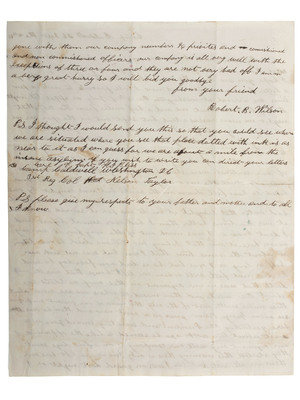 gone with them our company number 72 privates and commissioned
and non commissioned officers our company is all very well with the
exceptions of three or four and they are not very bad off I am in
a very great hurry so I will bid you goodbye
from your friend
Robert B. Wilson
PS I thought I would send you this so that you could see where
we are situated where you see that place dotted with ink is as
near to it as I can guess for we are about a mile from the
insane asylum if you wish to write you can direct your letters
care of
Camp Caldwell Washington DC
3rd Reg Col Nelson Taylor
PS please give my respects to your father and mother and to all
I know